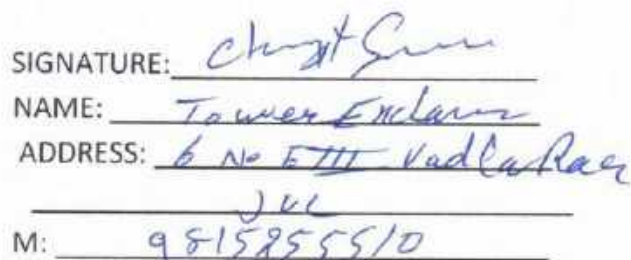 SIGNATURE:
NAME: Tower Enclave
ADDRESS: 6 No E III Vadla Raer
JUL
M: 9815255510